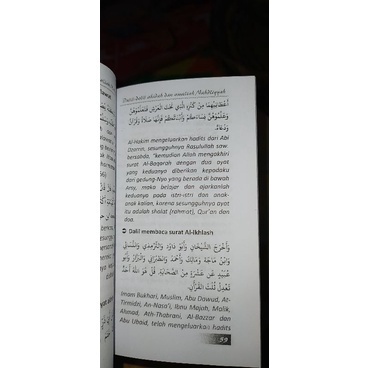 Dalil-dalil akidah dan amaliah Nahdliyyah
أَعْطَانِيْهِمَا مِنْ كَنْزِهِ الَّذِي تَحْتَ الْعَرْشِ فَتَعَلَّمُوهُنَّ
وَعَلِّمُوهُنَّ نِسَاءَكُمْ وَأَبْنَاءَكُمْ فَإِنَّهَا صَلَاةٌ وَقُرْآنٌ
وَدُعَاءٌ.
Al-Hakim mengeluarkan hadits dari Abi
Dzarrin, sesungguhnya Rasulullah saw
bersabda, "kemudian Allah mengakhiri
surat Al-Baqarah dengan dua ayat
yang keduanya diberikan kepadaku
dari gedung-Nya yang berada di bawah
Arsy, maka belajar dan ajarkanlah
keduanya pada istri-istri dan anak-
anak kalian, karena sesungguhnya ayat
itu adalah sholat (rahmat), Qur'an dan
doa.
Dalil membaca surat Al-Ikhlash
وَأَخْرَجَ الشَّيْخَانِ وَأَبُو دَاوُدَ وَالتِّرْمِذِيُّ وَالنَّسَائِي
وَابْنُ مَاجَهْ وَمَالِكُ وَأَحْمَدُ وَالطَّبَرَانِي وَالْبَزَّارُ وَأَبُو
عُبَيْدٍ عَنْ عَشْرَةٍ مِنَ الصَّحَابَةِ، قُلْ هُوَ اللَّهُ أَحَدٌ
تَعْدِلُ ثُلُثَ الْقُرْآنِ.
Imam Bukhari, Muslim, Abu Dawud, At-
Tirmidzi, An-Nasa'i, Ibnu Majah, Malik,
Ahmad, Ath-Thabrani, Al-Bazzar dan
Abu Ubaid, telah mengeluarkan hadits
59